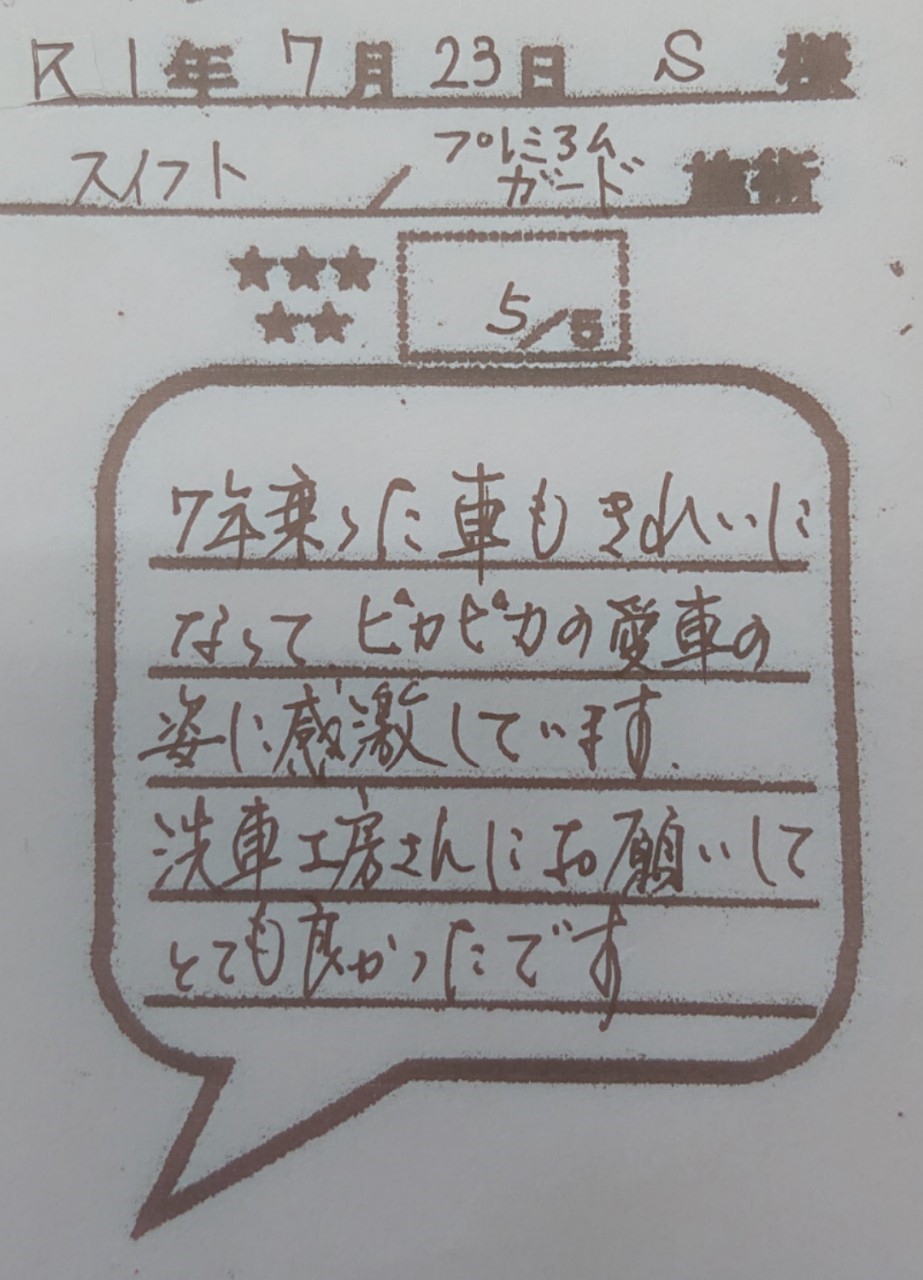 R1年 7月 23日 S 様
スイフト / プレミアム
ガード 施術
★★★
★★
5/5
7年乗った車もきれいに
なってピカピカの愛車の
姿に感激しています.
洗車工房さんにお願いして
とても良かったです